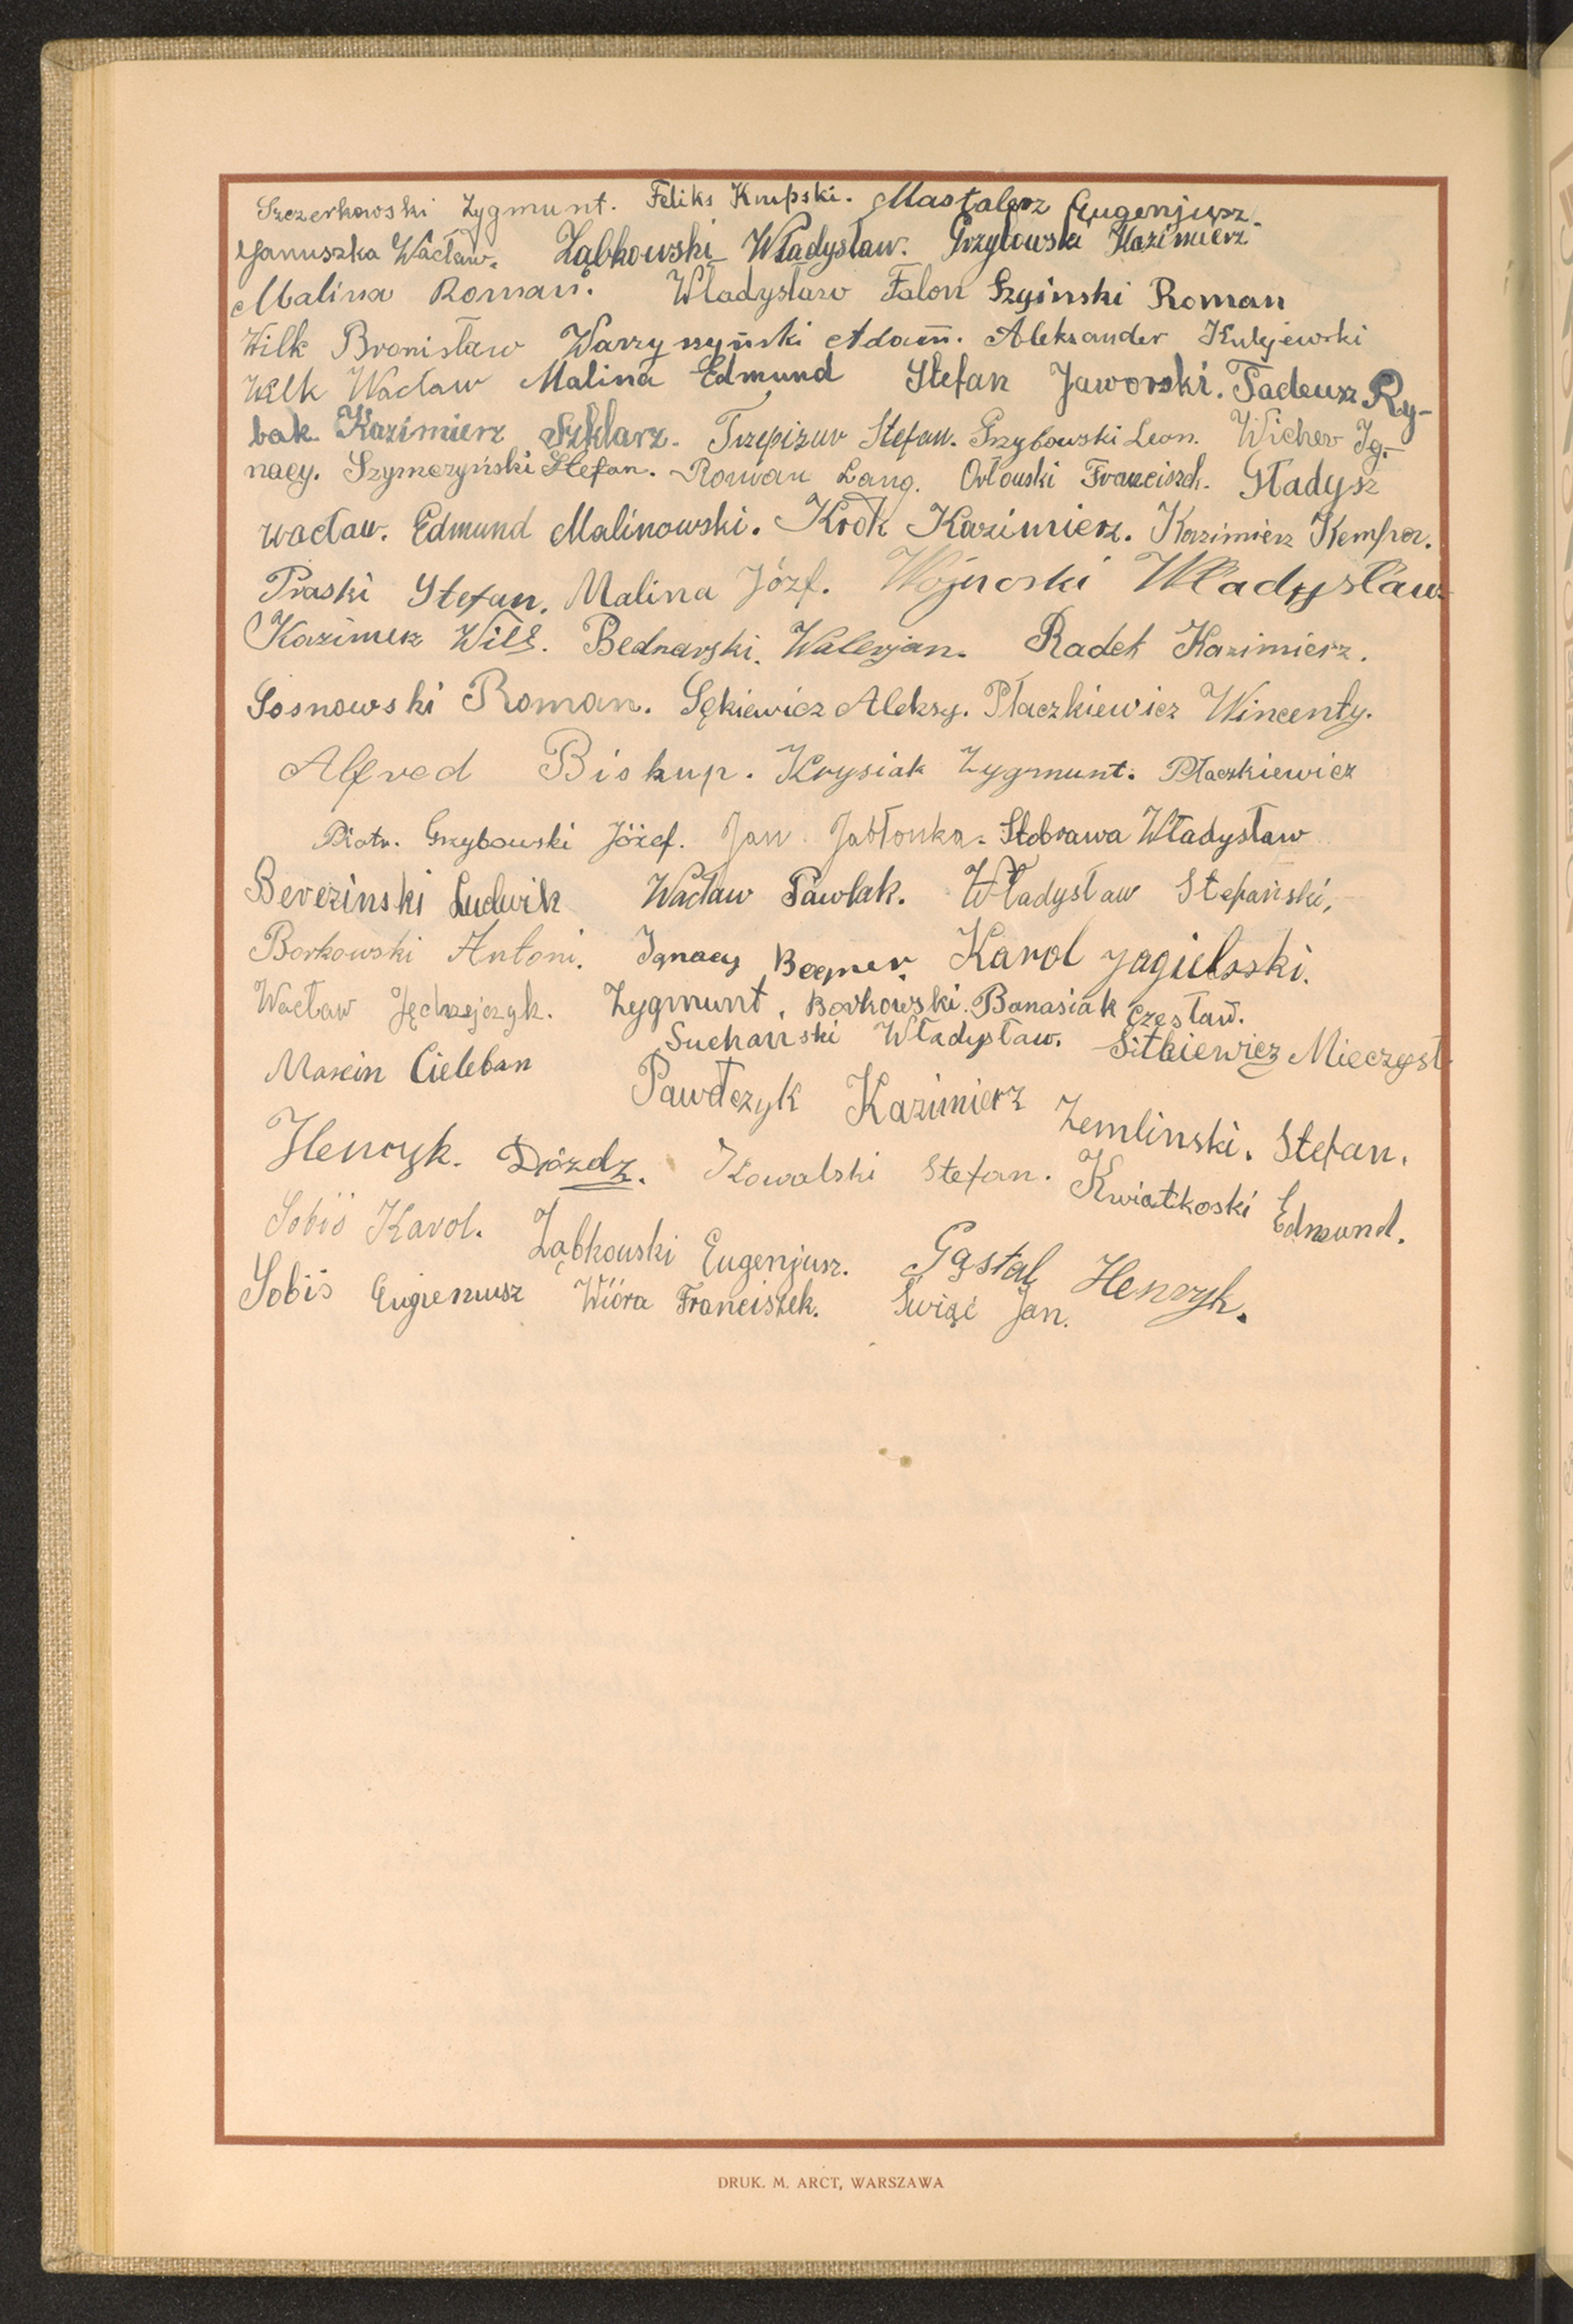 Szczerkowski Zygmunt. Feliks Krupski. Mastalerz Eugenjusz.
Januszka Wacław. Ząbkowski Władysław. Grzybowski Kazimierz
Malina Roman. Władysław Falon Szyinski Roman
Wilk Bronisław Warzyszyński Adam. Aleksander Kulejewski
Wilk Wacław Malina Edmund Stefan Jaworski. Tadeusz Ry-
bak. Kazimierz Szklarz. Trzepizur Stefan. Grzybowski Leon. Wicher Ig-
nacy. Szymczyński Stefan. Roman Lang. Orłouski Franciszek. Gładysz
wacław. Edmund Malinowski. Krok Kazimierz. Kazimierz Kempa.
Praski Stefan. Malina Józf. Wójnoski Władysław
Kazimerz Wilk. Bednarski. Walerjan. Radek Kazimierz.
Sosnowski Roman. Sękiewicz Aleksy. Płaczkiewicz Wincenty.
Alfred Biskup. Krysiak Zygmunt. Płaczkiewicz
Piotr. Grzybowski Józef. Jan Jabłonka. Stobrawa Władysław
Berezinski Ludwik Wacław Pawlak. Władysław Stefański,
Borkowski Antoni. Ignacy Karol Jagielsski.
Wacław Jędrzejczyk. Zygmunt, Borkowski. Banasiak Czesław.
Suchanski Władysław. Sitkiewicz Mieczysł
Marcin Cieleban Pawłczyk Kazimierz Zemlinski. Stefan.
Henryk. Dróżdz. Kowalski Stefan. Kwiatkoski Edmund.
Sobiś Karol. Ząbkouski Eugenjusz. Gąstał Henryk.
Sobiś Eugieniusz Wióra Franciszek. Świąć Jan.
DRUK. M. ARCT, WARSZAWA